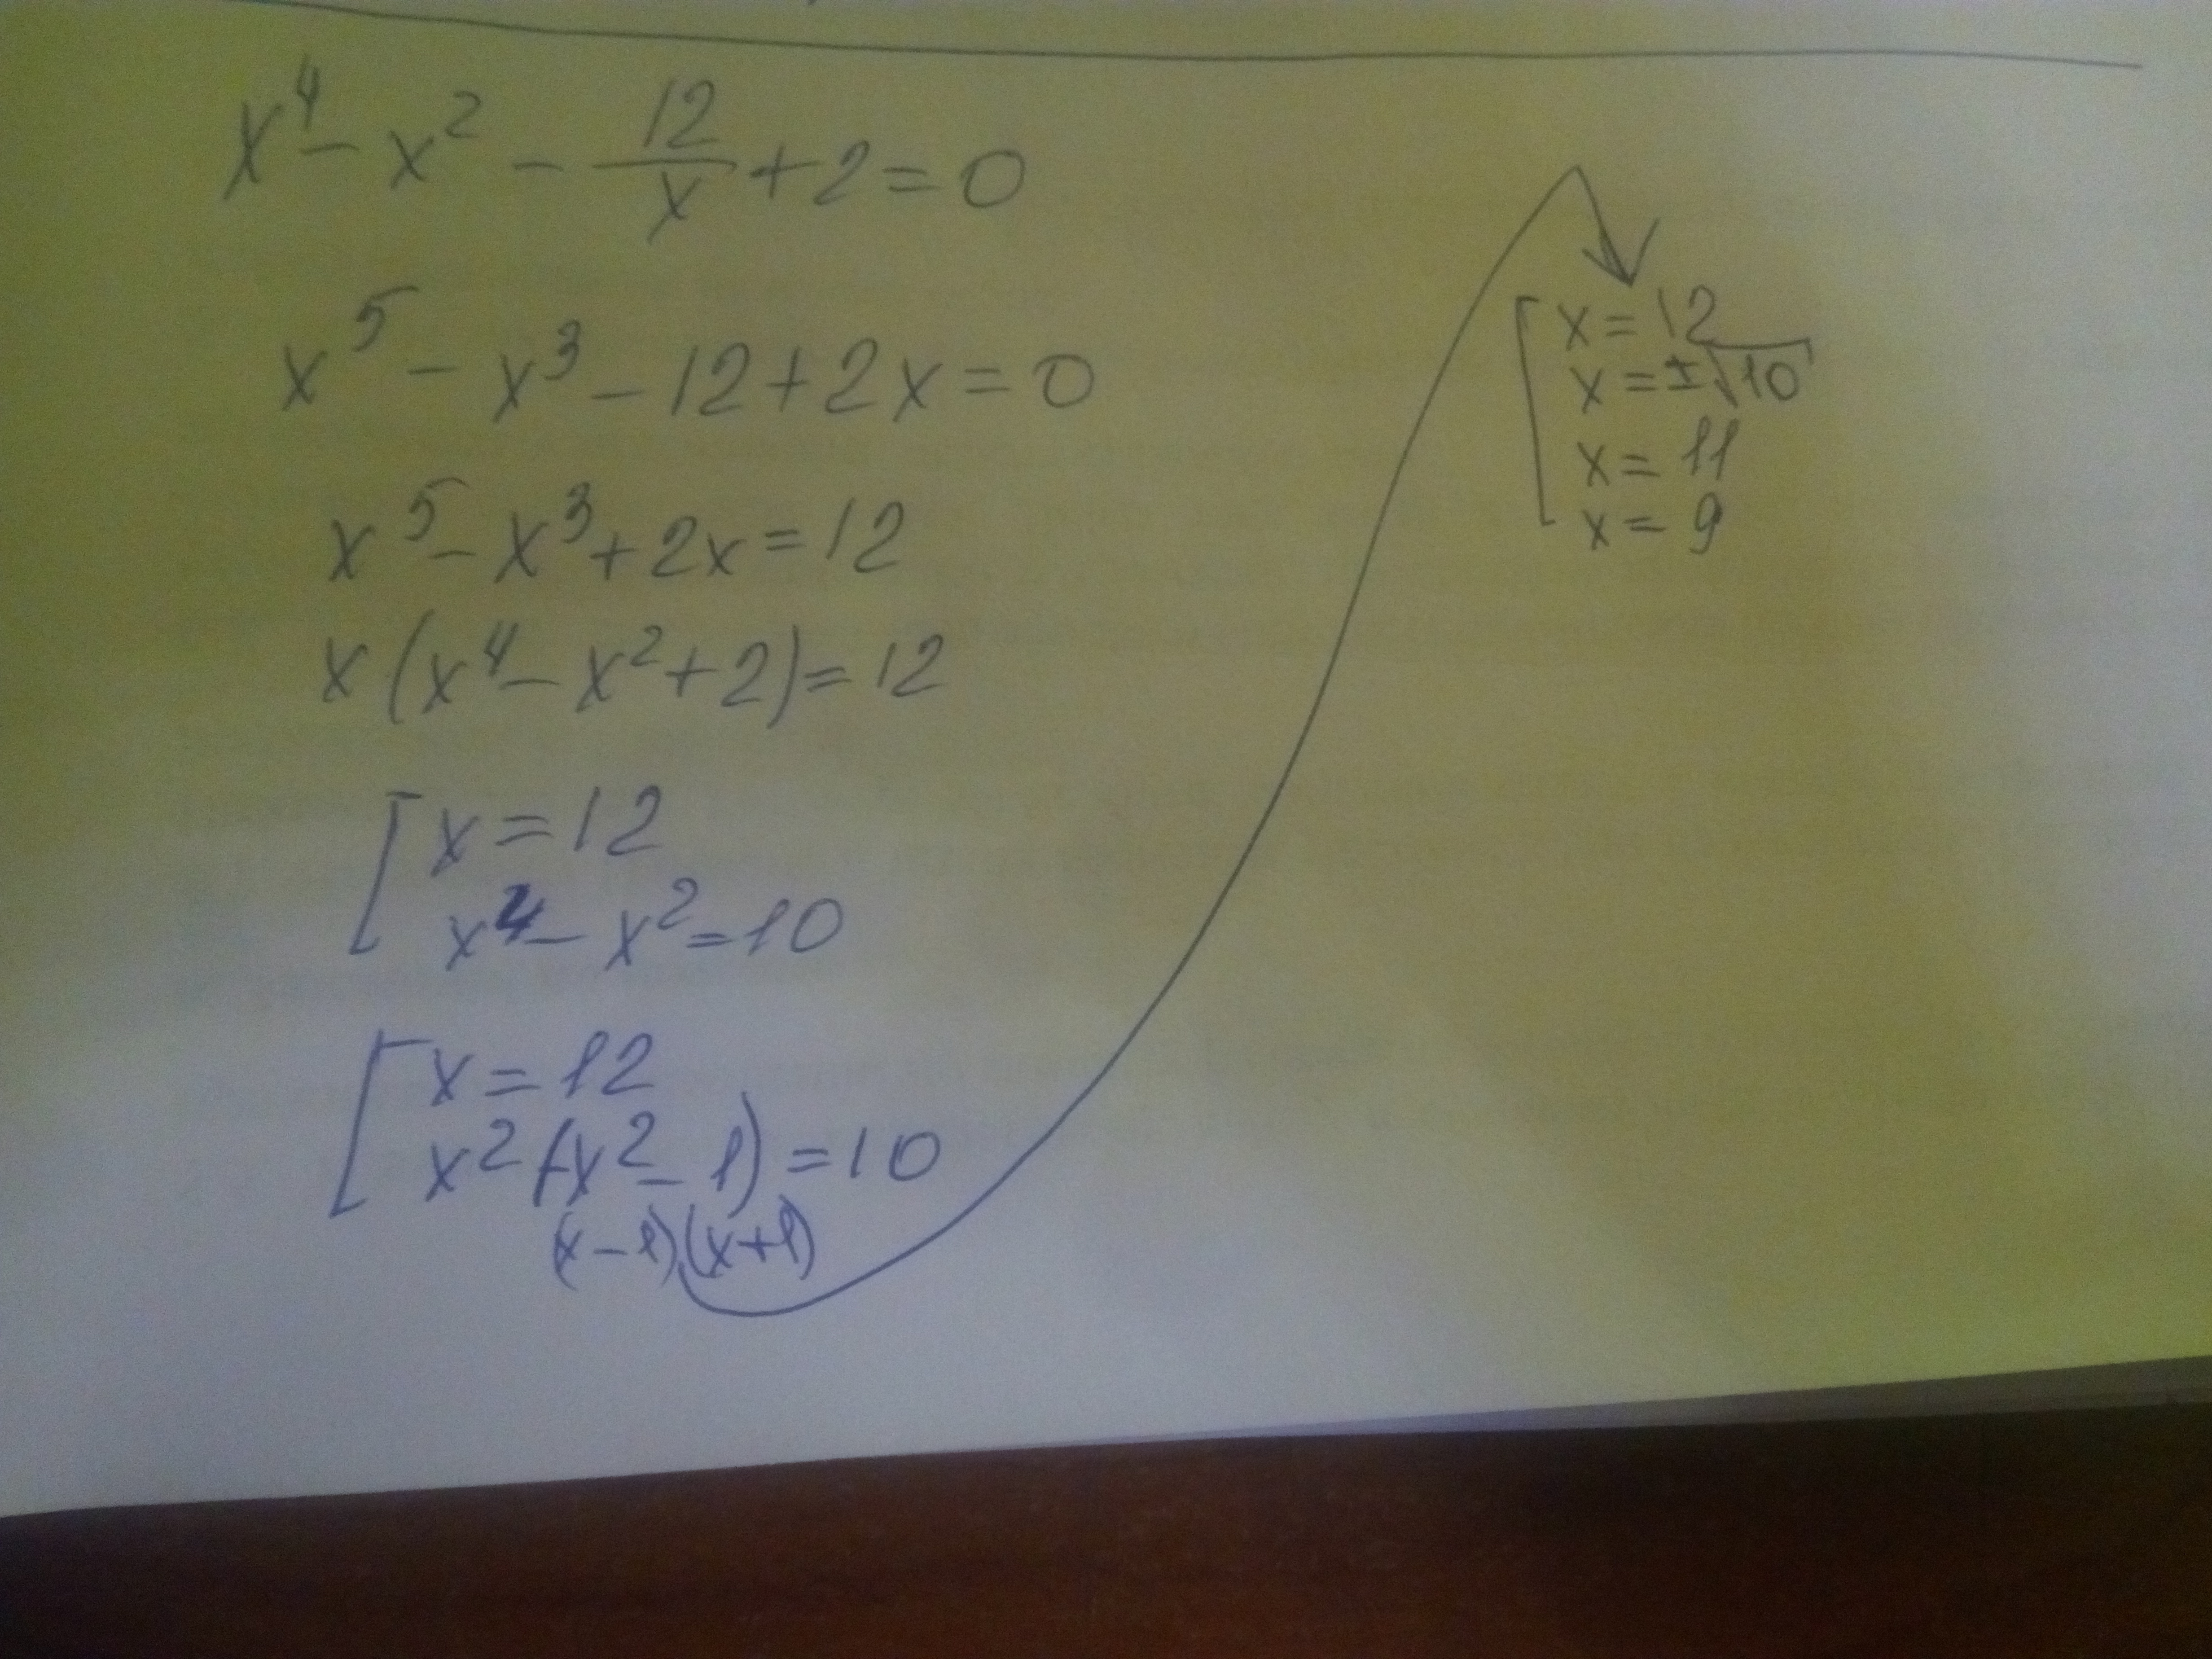 x⁴ − x² − 12/x + 2 = 0
x⁵ − x³ − 12 + 2x = 0
x⁵ − x³ + 2x = 12
x(x⁴ − x² + 2) = 12
[ x = 12
x⁴ − x² = 10
[ x = 12
x²(x² − 1) = 10
(x − 1)(x + 1)
[ x = 12
x = ±√10
x = 11
x = 9